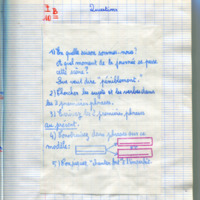 Questions
1) En quelle saison sommes-nous?
A quel moment de la journée se passe
cette scène?
Que veut dire "péniblement."
2) Cherchez les sujets et les verbes dans
les 2 premières phrases.
3) les 2 premières phrases
au présent.
4) Construisez deux phrases sur ce
modèle:
5) Conjuguez " " à l'imparfait.